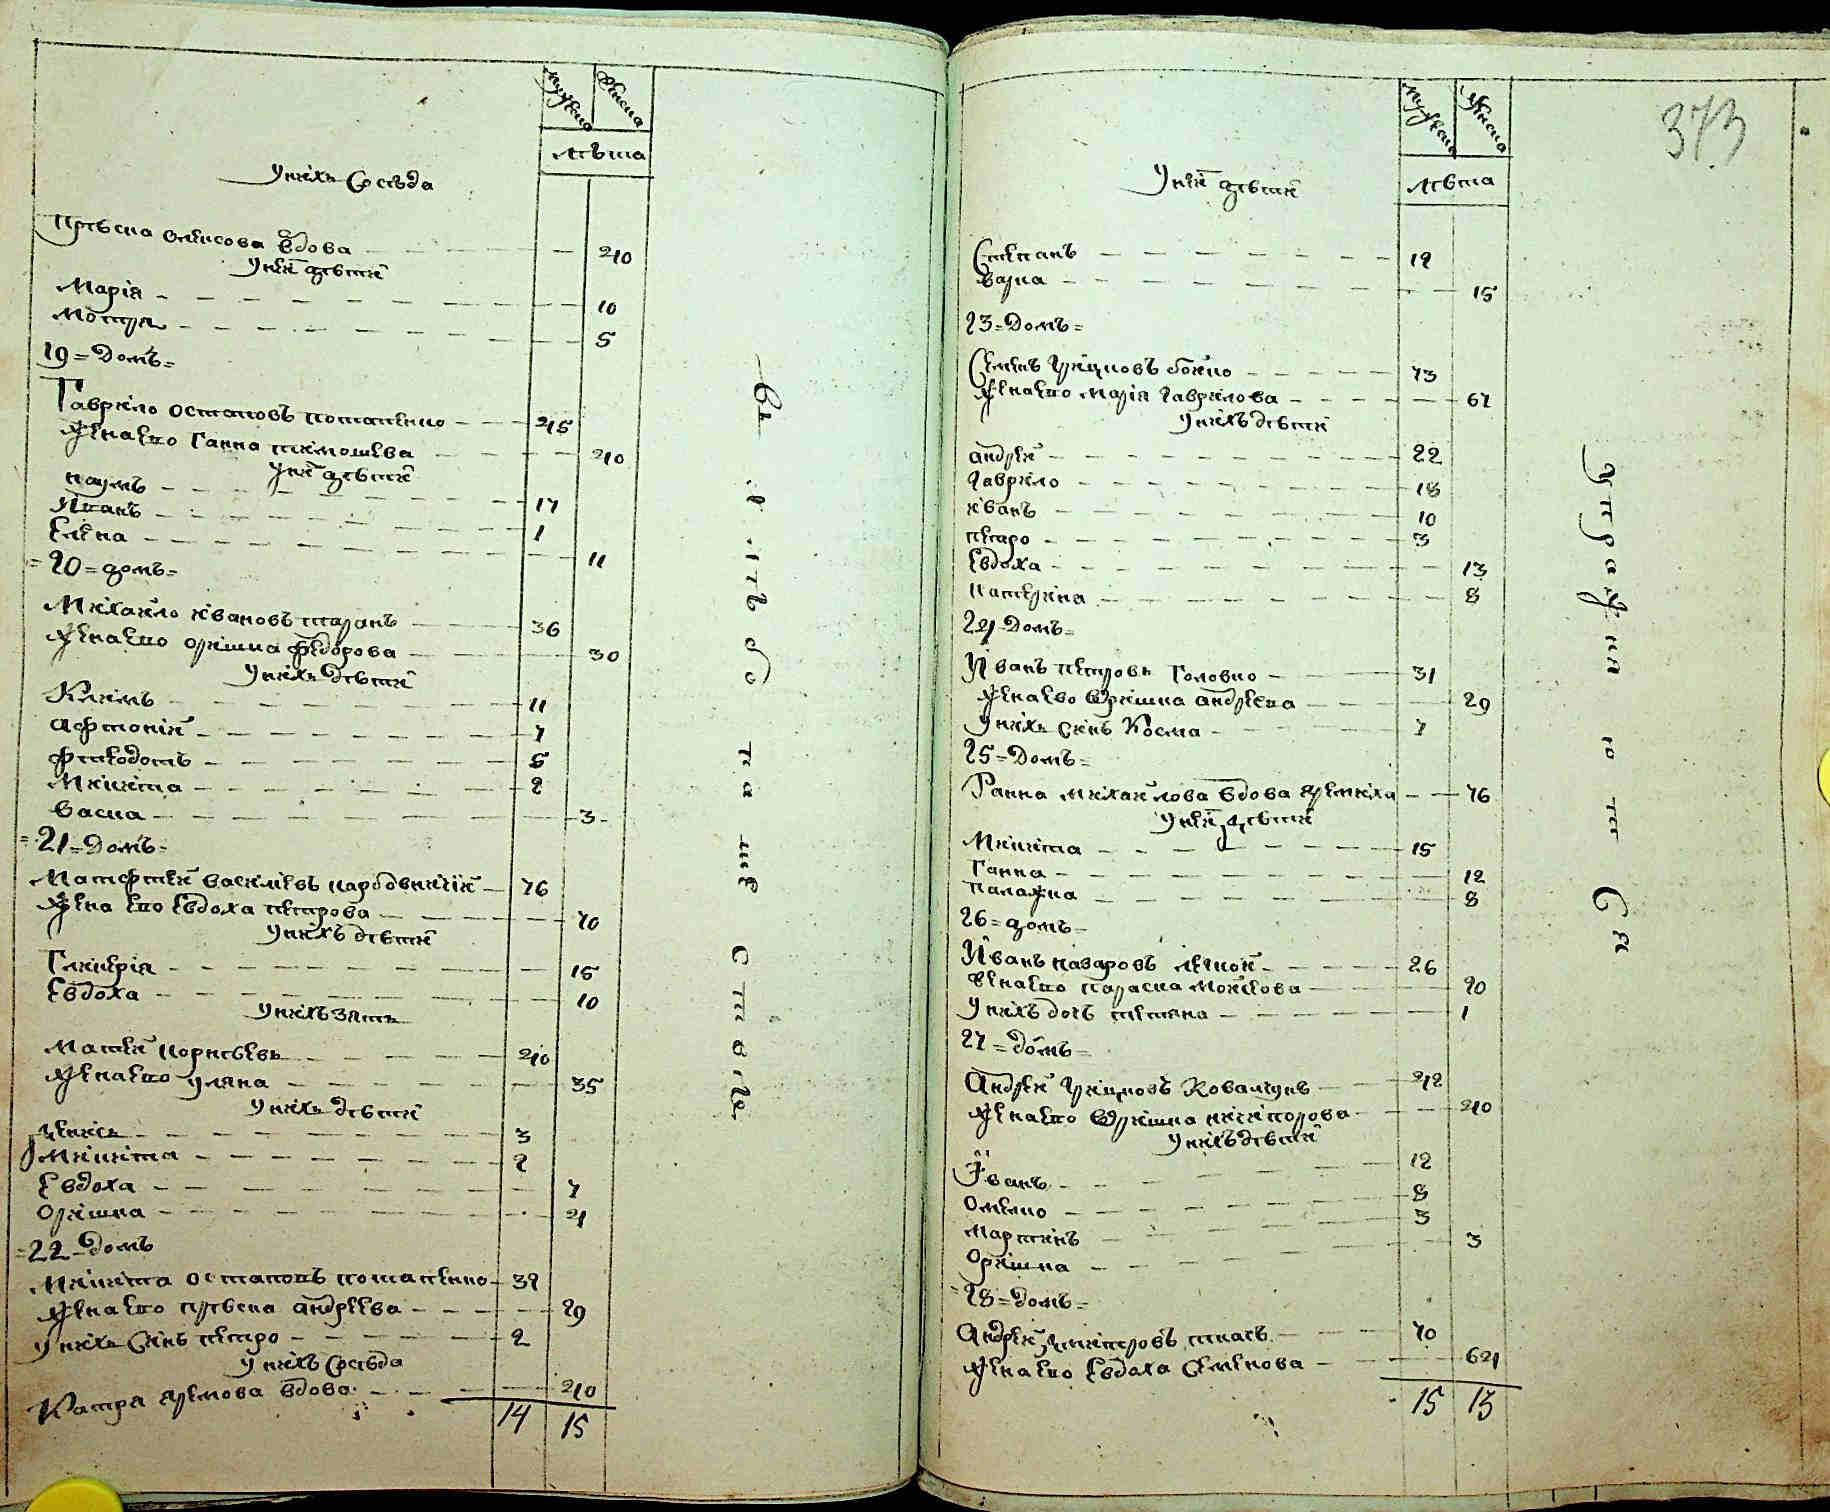 мужеска
женска
лѣта
У нихъ сосѣда
Прѣска вдова 40
У неи дѣти
Марія 10
Мотря 5
19 = Домъ =
Гаврило Остаповъ Потапенко 45
Жена его Ганна Тимошева 40
У них дѣти
Наумъ 17
Иванъ 1
Елена 11
= 20 = домъ =
Михаило Ивановъ Таранъ 36
Жена его Оришка Федорова 30
У нихъ дѣти
Климъ 11
Афтоній 7
Фтеодотъ 5
Микита 2
Васка 3
= 21 = Домъ =
Матфтей Василіевъ 76
Жена его Евдоха Петрова 70
У нихъ дѣти
Гликерія 15
Евдоха 10
У нихъ зять
Матвѣй Корнѣевъ 40
Жена его Уляна 35
У нихъ дѣти
Денисъ 3
Микита 2
Евдоха 7
Оришка 4
= 22 = Домъ
Микита Остаповъ Потапенко 32
Жена его Прѣска Андреева 29
У нихъ синъ Петро 2
У нихъ сосѣда
Катря Яремова вдова 40
14 15
Въ лѣто та те стве
373
мужеска
женска
лѣта
У неи дѣти
Степанъ 19
Варка 15
23 = Домъ =
Семенъ Грицковъ Бойко 73
Жена его Марія Гаврилова 62
У нихъ дѣти
Андрей 22
Гаврило 18
Иванъ 10
Петро 3
Евдоха 13
Катерина 8
24 = Домъ =
Иванъ Петровъ Головко 31
Жена его Оришка Андреева 29
У нихъ синъ Косма 7
25 = Домъ =
Ганна Михайлова вдова Яремиха 46
У неи дѣти
Микита 15
Ганна 12
Палажка 8
26 = домъ =
Иванъ Назаровъ 26
Жена его Параска 20
У нихъ дочь Тетяна 1
27 = домъ =
Андрей Грицковъ Ковалчукъ 42
Жена его Оришка Никифорова 40
У нихъ дѣти
Иванъ 12
Омелко 8
Мартинъ 3
Оришка 3
28 = домъ =
Андрей Дмитровъ Ткачъ 70
Жена его Евдоха Семенова 64
15 13